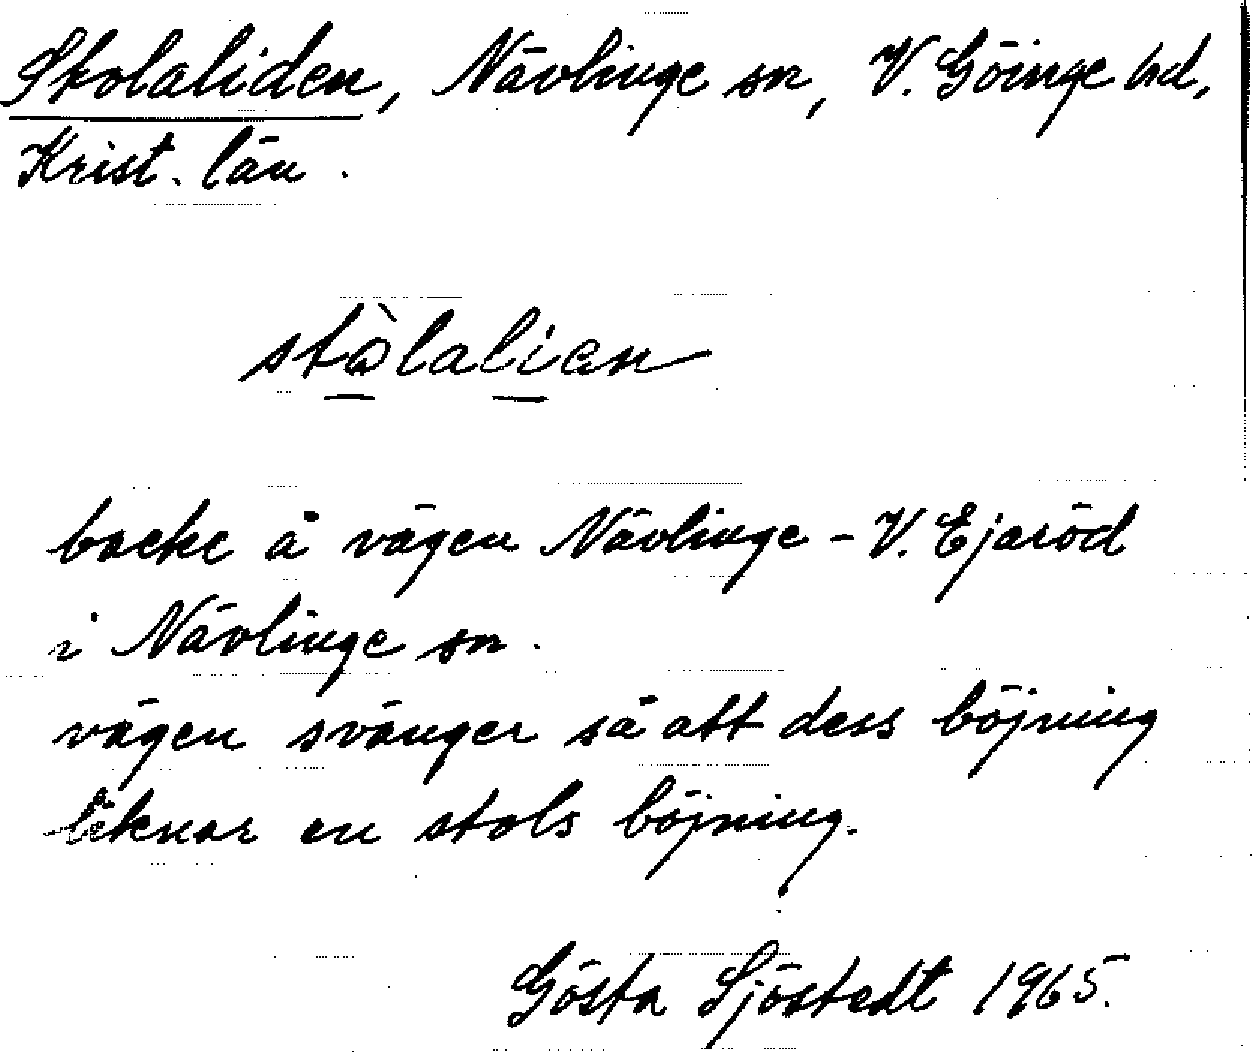 Stolaliden, Nävlinge sn, V. Göinge hd,
Krist. län.
stòlalien
backe å vägen Nävlinge - V. Ejaröd
i Nävlinge sn.
vägen svänger så att dess böjning
liknar en stols böjning.
Gösta Sjöstedt 1965.